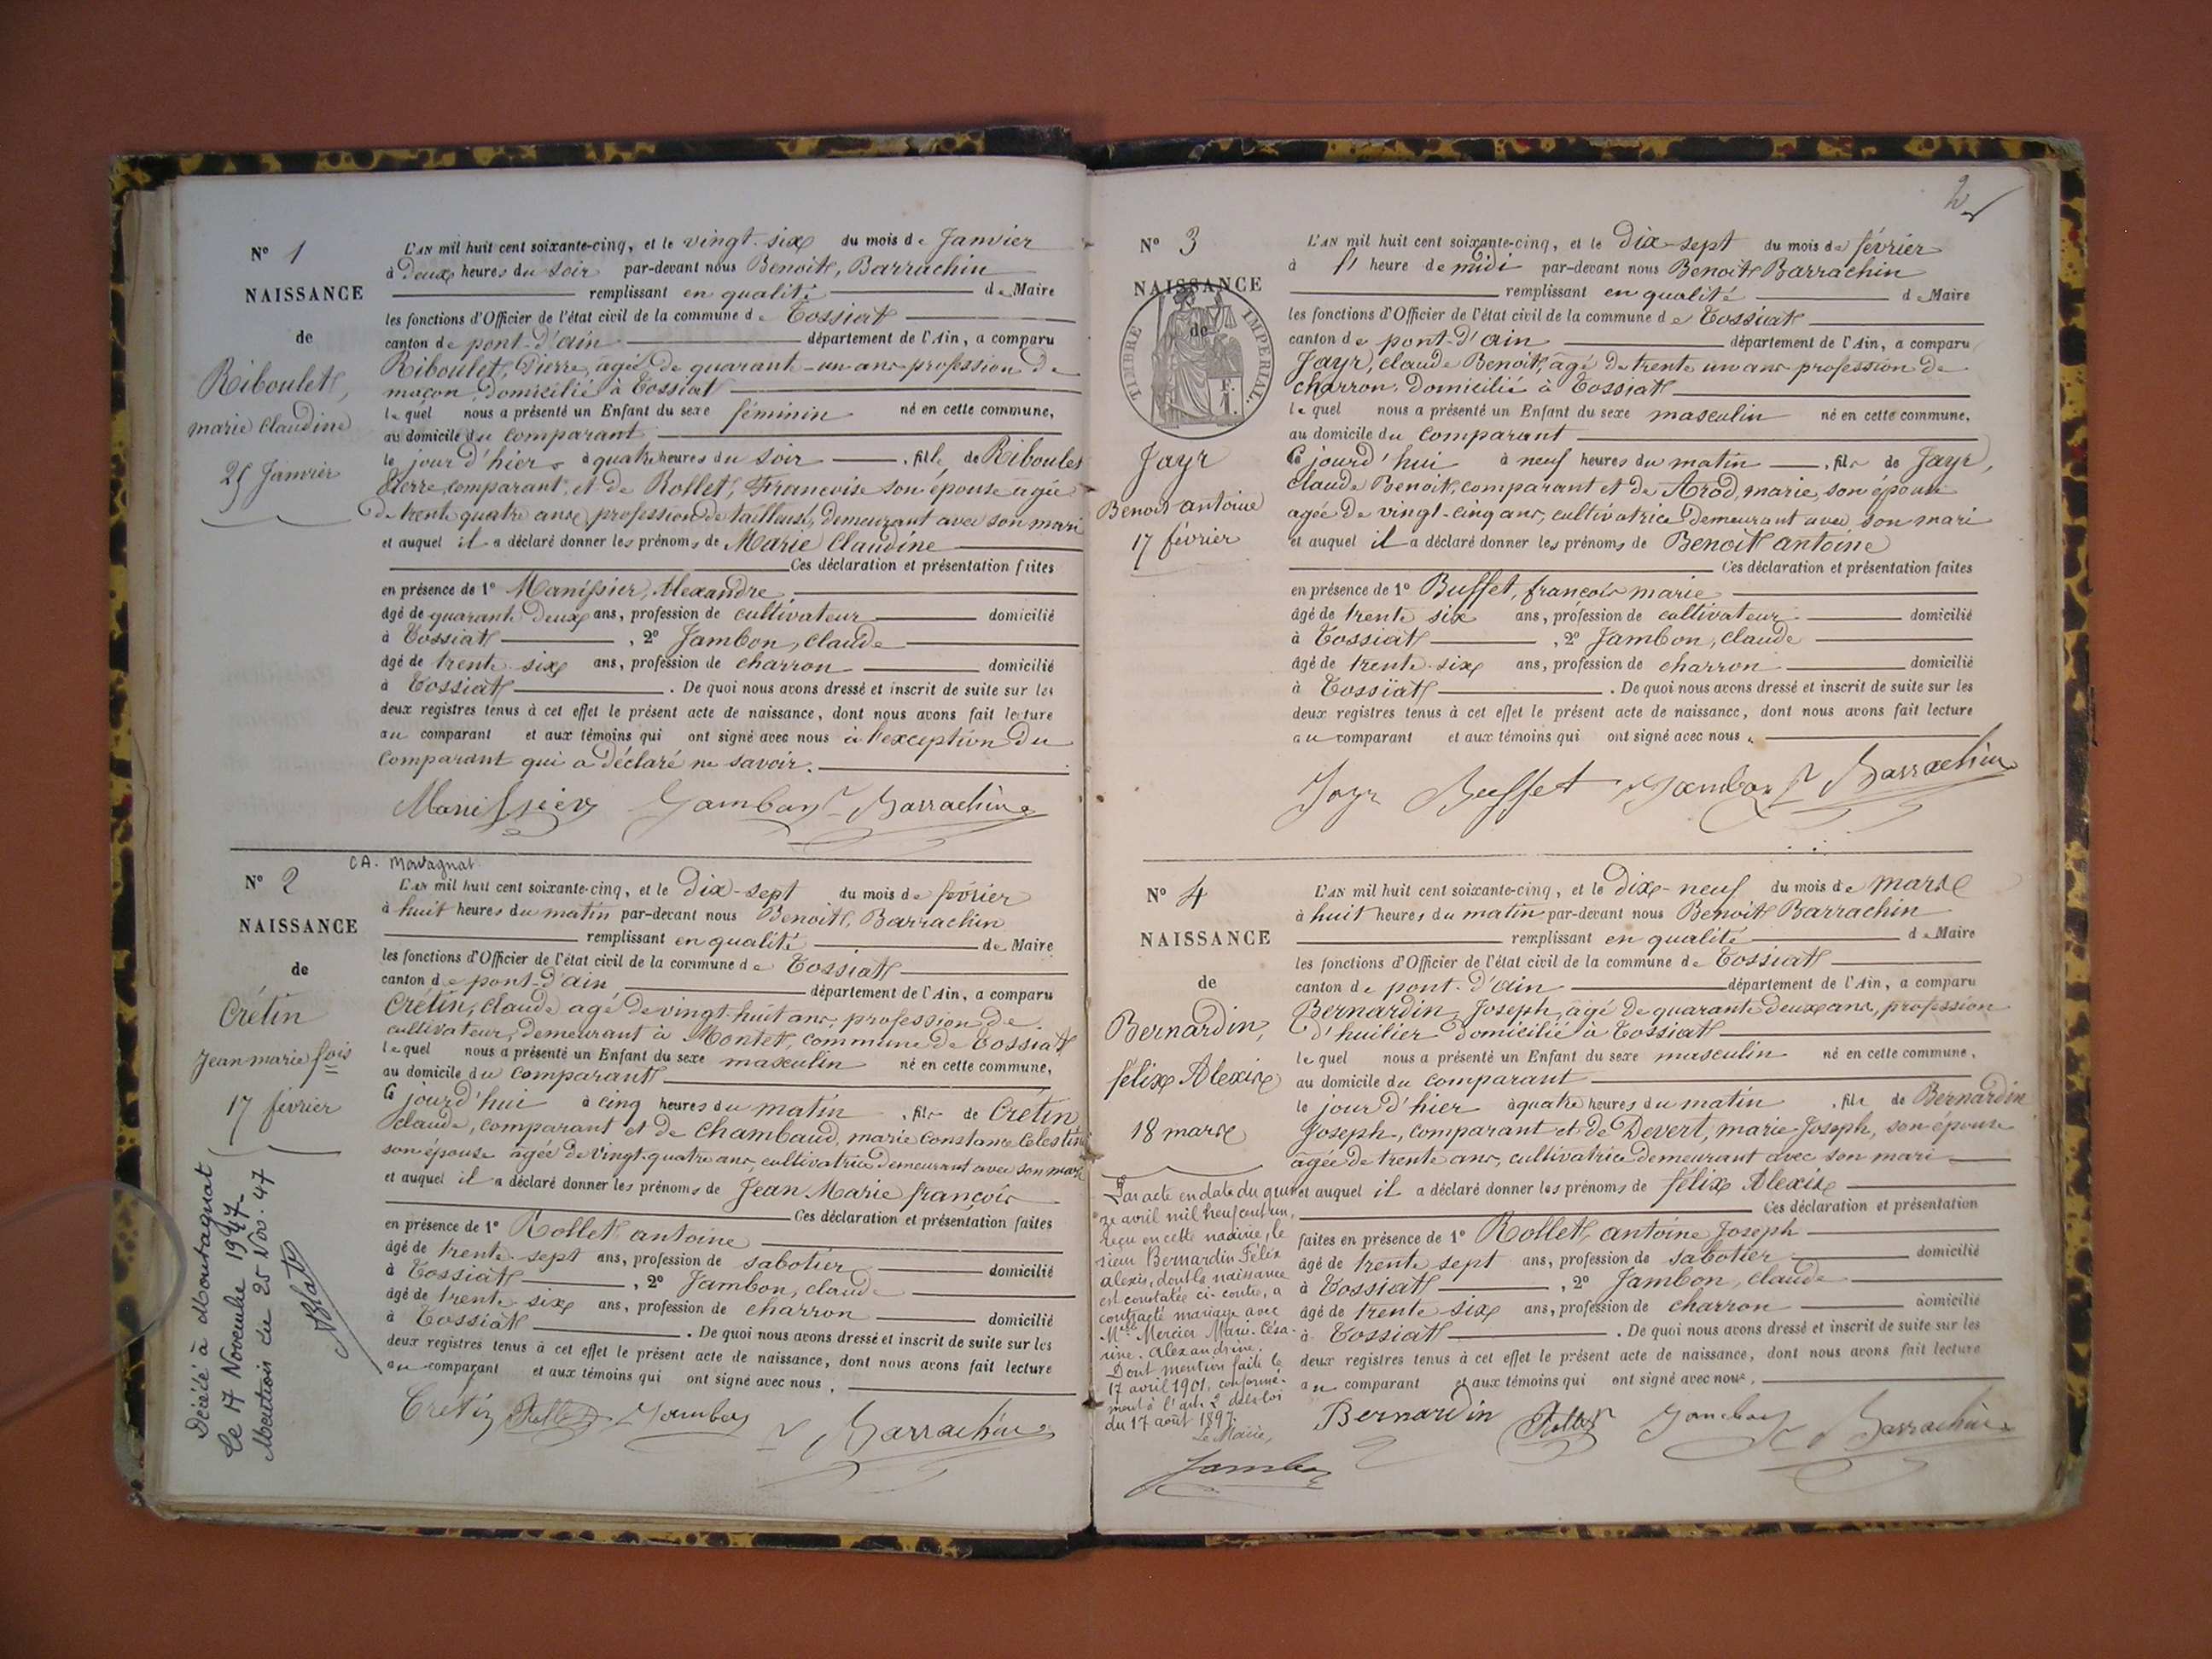 N° 1
NAISSANCE
de
Riboulet,
marie claudine
25 Janvier
L'AN mil huit cent soixante-cinq, et le vingt-six du mois de Janvier
à Deux heures du soir par-devant nous Benoit, Barrachin
remplissant en qualité de Maire
les fonctions d'Officier de l'état civil de la commune de Tossiat
canton de pont-d'ain département de l'Ain, a comparu
Riboulet, Pierre, agé de quarante-un ans profession de
maçon, domicilié à Tossiat
lequel nous a présenté un Enfant du sexe féminin né en cette commune,
au domicile du comparant
le jour d'hier à quatre heures du soir, fille de Riboulet
Pierre, comparant, et de Rollet, Francoise son épouse agée
de trente quatre ans, profession de tailleuse, demeurant avec son mari
et auquel il a déclaré donner les prénoms de Marie Claudine
Ces déclaration et présentation faites
en présence de 1° Manissier, Alexandre
âgé de quarante Deux ans, profession de cultivateur domicilié
à Tossiat, 2° Jambon, claude
âgé de trente six ans, profession de charron domicilié
à Tossiat. De quoi nous avons dressé et inscrit de suite sur les
deux registres tenus à cet effet le présent acte de naissance, dont nous avons fait lecture
au comparant et aux témoins qui ont signé avec nous à l'exception du
comparant qui a déclaré ne savoir.
Manissier Jambon Barrachin
CA. Montagnat
N° 2
NAISSANCE
de
Crétin
Jean marie fois
17 février
Décédé à Montagnat
le 17 Novembre 1947
Mention du 25 Nov. 47
L'AN mil huit cent soixante-cinq, et le Dix-sept du mois de février
à huit heures du matin par-devant nous Benoit, Barrachin
remplissant en qualité de Maire
les fonctions d'Officier de l'état civil de la commune de Tossiat
canton de pont-d'ain département de l'Ain, a comparu
Crétin, claude agé de vingt-huit ans, profession de
cultivateur, demeurant à Montet, commune de Tossiat
lequel nous a présenté un Enfant du sexe masculin né en cette commune,
au domicile du comparant
Ce jourd'hui à cinq heures du matin, fils de Crétin
claude, comparant et de chambaud, marie constance Celestine
son épouse agée de vingt-quatre ans, cultivatrice demeurant avec son mari
et auquel il a déclaré donner les prénoms de Jean Marie françois
Ces déclaration et présentation faites
en présence de 1° Rollet antoine
âgé de trente-sept ans, profession de sabotier domicilié
à Tossiat, 2° Jambon, claude
âgé de trente six ans, profession de charron domicilié
à Tossiat. De quoi nous avons dressé et inscrit de suite sur les
deux registres tenus à cet effet le présent acte de naissance, dont nous avons fait lecture
au comparant et aux témoins qui ont signé avec nous,
Cretin Rollet Jambon Barrachin
2
N° 3
NAISSANCE
de
TIMBRE IMPÉRIAL
Jayr
Benoit antoine
17 février
L'AN mil huit cent soixante-cinq, et le Dix-sept du mois de février
à heure de midi par-devant nous Benoit Barrachin
remplissant en qualité de Maire
les fonctions d'Officier de l'état civil de la commune de Tossiat
canton de pont-d'ain département de l'Ain, a comparu
Jayr, claude Benoit, agé de trente un ans profession de
charron, domicilié à Tossiat
lequel nous a présenté un Enfant du sexe masculin né en cette commune,
au domicile du comparant
Ce jourd'hui à neuf heures du matin, fils de Jayr,
claude Benoit, comparant et de Arod, marie, son épouse
agée de vingt-cinq ans, cultivatrice demeurant avec son mari
et auquel il a déclaré donner les prénoms de Benoit antoine
Ces déclaration et présentation faites
en présence de 1° Buffet, françois marie
âgé de trente six ans, profession de cultivateur domicilié
à Tossiat, 2° Jambon, claude
âgé de trente-six ans, profession de charron domicilié
à Tossiat. De quoi nous avons dressé et inscrit de suite sur les
deux registres tenus à cet effet le présent acte de naissance, dont nous avons fait lecture
au comparant et aux témoins qui ont signé avec nous.
Jayr Buffet Jambon Barrachin
N° 4
NAISSANCE
de
Bernardin,
félix Alexis
18 mars
Par acte en date du quin
ze avril mil neuf cent un,
reçu en cette mairie, le
sieur Bernardin Félix
alexis, dont la naissance
est constatée ci-contre, a
contracté mariage avec
Mlle Mercier Marie-Césa-
rine-Alexandrine.
Dont mention faite le
17 avril 1901, conformé-
ment à l'art. 2 de la loi
du 17 août 1897.
Le Maire,
Jambon
L'AN mil huit cent soixante-cinq, et le Dix-neuf du mois de mars
à huit heures du matin par-devant nous Benoit Barrachin
remplissant en qualité de Maire
les fonctions d'Officier de l'état civil de la commune de Tossiat
canton de pont-d'ain département de l'Ain, a comparu
Bernardin, Joseph, agé de quarante-deux ans, profession
d'huilier domicilié à Tossiat
lequel nous a présenté un Enfant du sexe masculin né en cette commune,
au domicile du comparant
le jour d'hier à quatre heures du matin, fils de Bernardin
Joseph, comparant et de Devert, marie Joseph, son épouse
agée de trente ans, cultivatrice demeurant avec son mari
et auquel il a déclaré donner les prénoms de félix Alexis
Ces déclaration et présentation
faites en présence de 1° Rollet, antoine Joseph
âgé de trente sept ans, profession de sabotier domicilié
à Tossiat, 2° Jambon, claude
âgé de trente six ans, profession de charron domicilié
à Tossiat. De quoi nous avons dressé et inscrit de suite sur les
deux registres tenus à cet effet le présent acte de naissance, dont nous avons fait lecture
au comparant et aux témoins qui ont signé avec nous,
Bernardin Rollet Jambon Barrachin